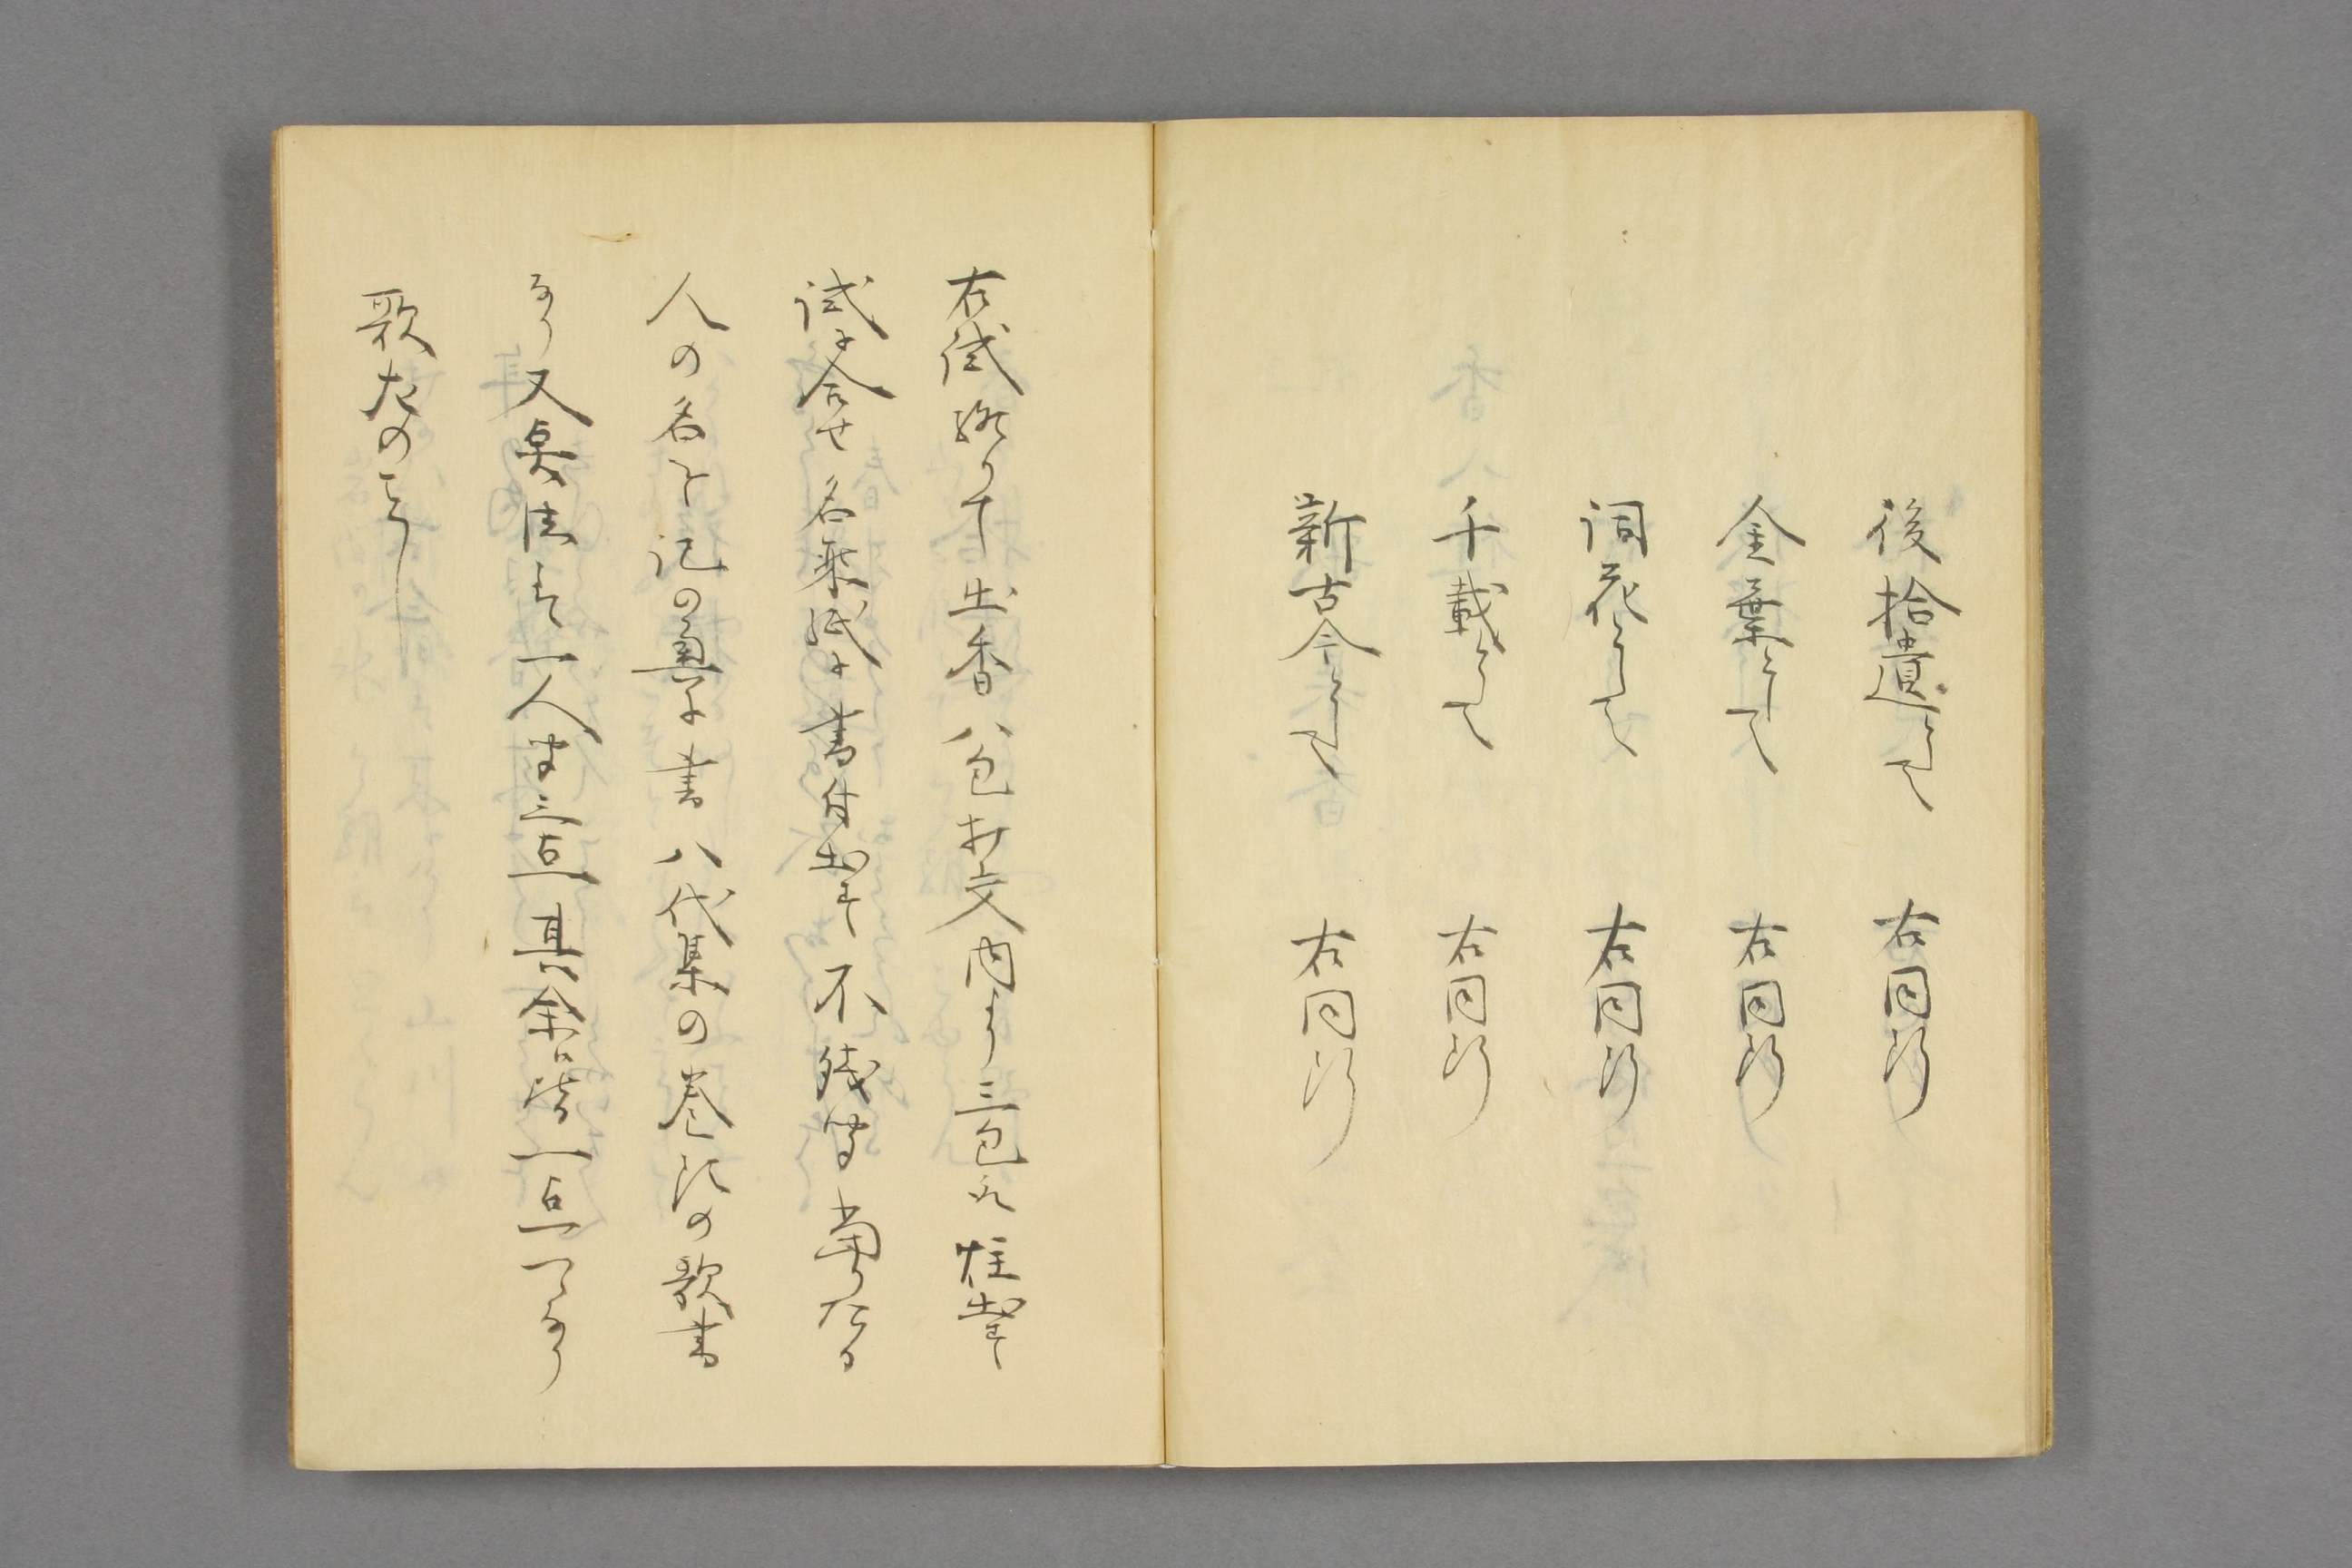 後拾遺として　右同断
金葉として　右同断
詞花として　右同断
千載として　右同断
新古今として　右同断
右試終りて出香八包打交内より三包取炷出す
試に合せ名乗紙に書付出す不残聞当りたる
人の名を記の奥に書八代集の巻頭の歌書
なり又点法は一人聞三点其余は皆一点つゝなり
歌左のことし